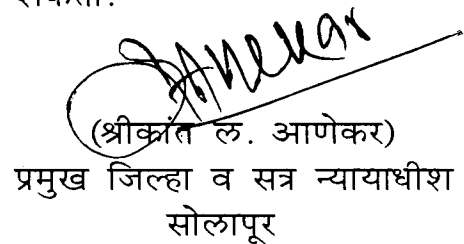 Anekar
(श्रीकांत ल. आणेकर)
प्रमुख जिल्हा व सत्र न्यायाधीश
सोलापूर